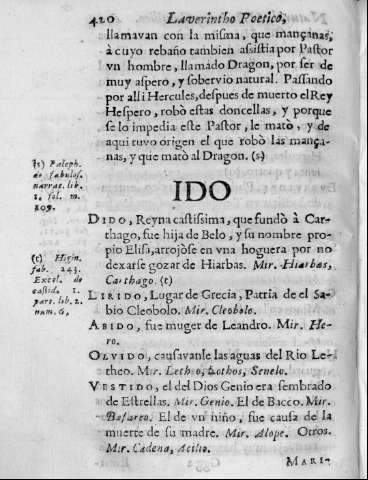 420 Laverintho Poetico,
llamavan con la misma, que mançanas,
à cuyo rebaño tambien asistia por Pastor
vn hombre, llamado Dragon, por ser de
muy aspero, y sobervio natural. Passando
por alli Hercules, despues de muerto el Rey
Hespero, robò estas doncellas, y porque
se lo impedia este Pastor, le matò, y de
aqui tuvo origen el que robò las mança-
nas, y que matò al Dragon. (s)
(s) Paleph.
de fabulos.
narrat. lib.
1. fol. m.
209.
IDO
DIDO, Reyna castissima, que fundò à Car-
thago, fue hija de Belo, y su nombre pro-
pio Elisa, arrojòse en vna hoguera por no
dexarse gozar de Hiarbas. Mir. Hiarbas,
Carthago. (t)
(t) Higin.
fab. 243.
Excel. de
castid. 1.
part. lib. 2.
num. 6.
LIRIDO, Lugar de Grecia, Patria de el Sa-
bio Cleobolo. Mir. Cleobolo.
ABIDO, fue muger de Leandro. Mir. He-
ro.
OLVIDO, causavanle las aguas del Rio Le-
theo. Mir. Letheo, Lothos, Senelo.
VESTIDO, el del Dios Genio era sembrado
de Estrellas. Mir. Genio. El de Bacco. Mir.
Basareo. El de vn niño, fue causa de la
muerte de su madre. Mir. Alope. Otros.
Mir. Cadena, Acilio.
MARI-